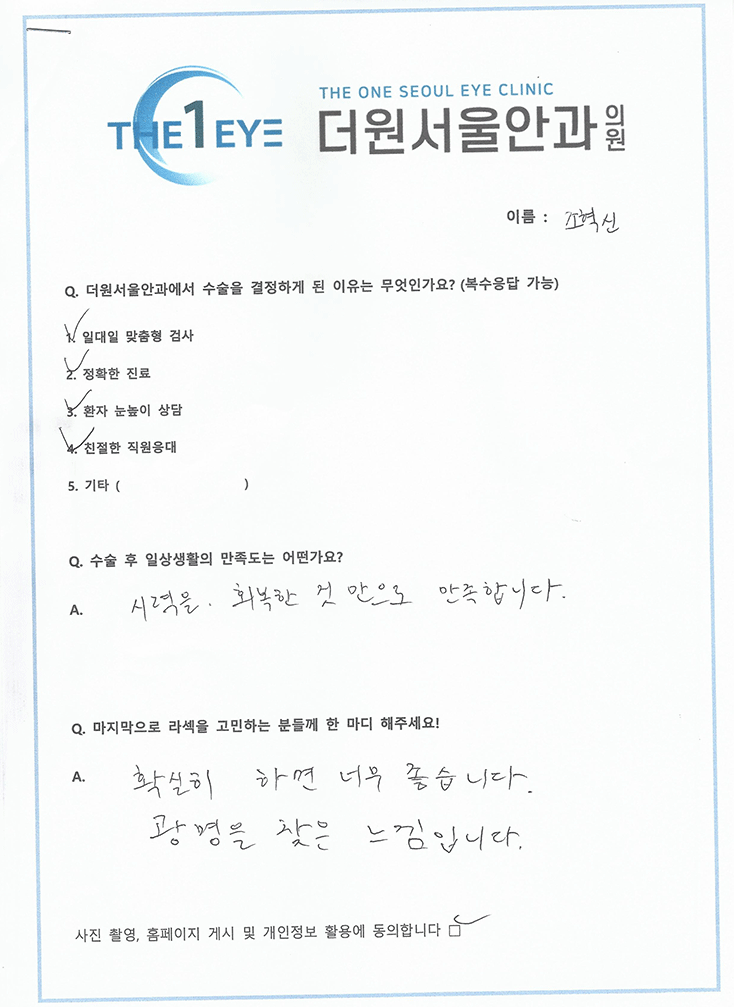 THE 1 EYE
THE ONE SEOUL EYE CLINIC
더원서울안과의원
이름 : 조혁신
Q. 더원서울안과에서 수술을 결정하게 된 이유는 무엇인가요? (복수응답 가능)
1. 일대일 맞춤형 검사
2. 정확한 진료
3. 환자 눈높이 상담
4. 친절한 직원응대
5. 기타 ( )
Q. 수술 후 일상생활의 만족도는 어떤가요?
A. 시력을. 회복한 것 만으로 만족합니다.
Q. 마지막으로 라섹을 고민하는 분들께 한 마디 해주세요!
A. 확실히 하면 너무 좋습니다.
광명을 찾은 느낌입니다.
사진 촬영, 홈페이지 게시 및 개인정보 활용에 동의합니다 □